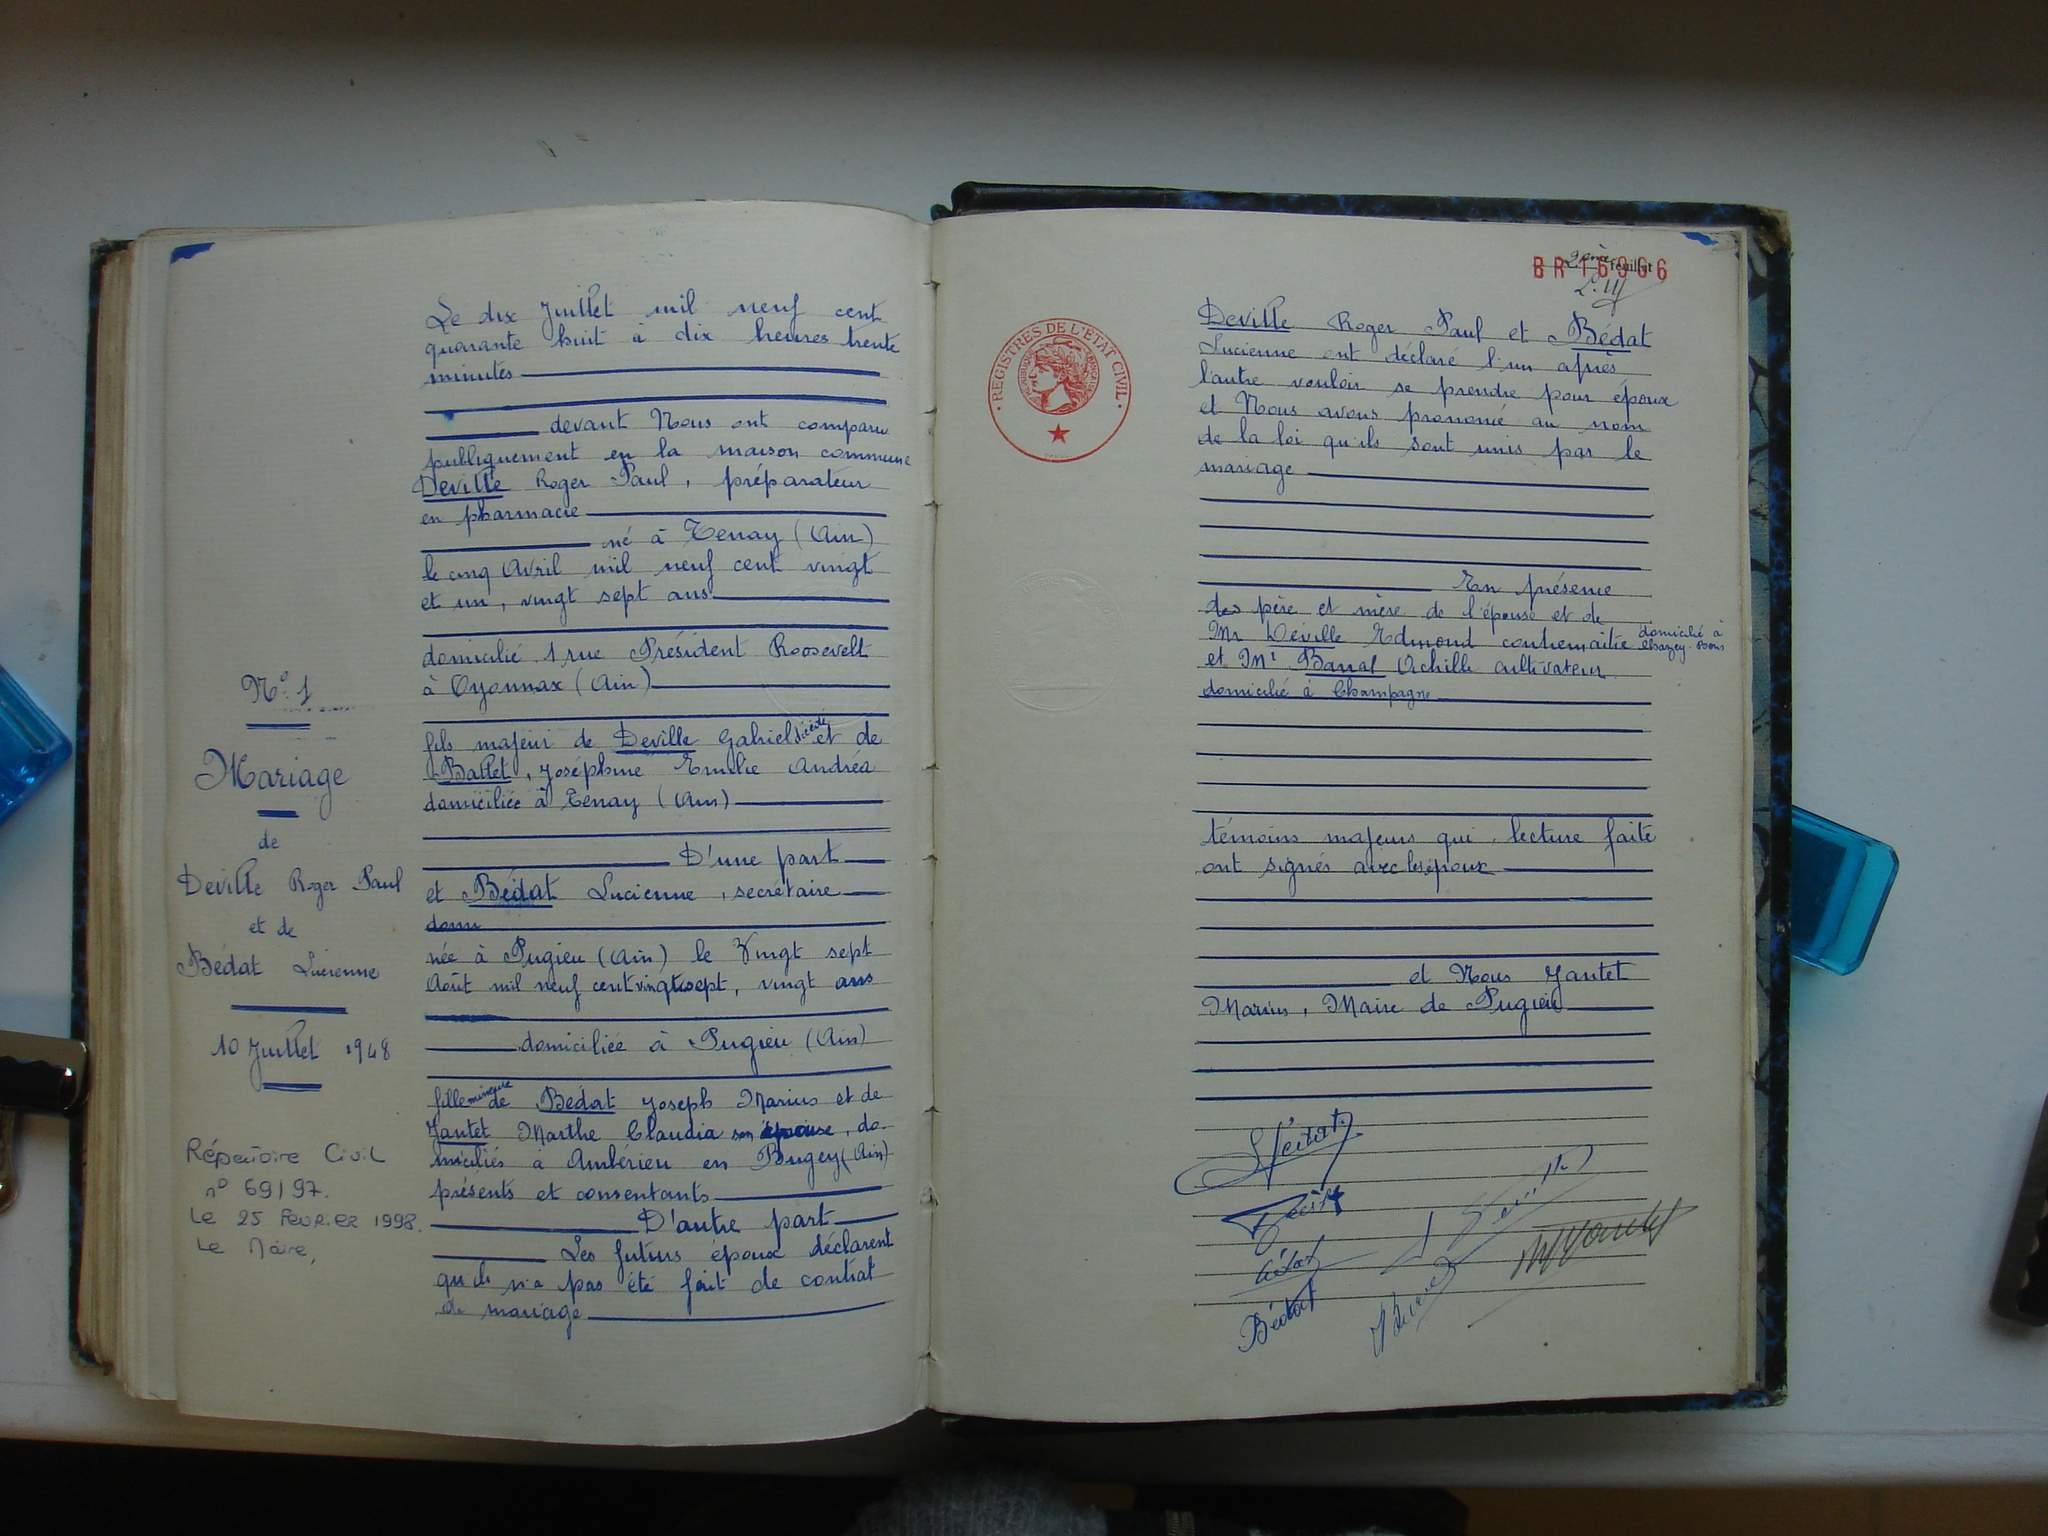 N° 1
Mariage
de
Deville Roger Paul
et de
Bédat Lucienne
10 Juillet 1948
Répertoire Civil
n° 69/97.
Le 25 Fevrier 1998.
Le Maire,
Le dix Juillet mil neuf cent
quarante huit à dix heures trente
minutes
devant Nous ont comparu
publiquement en la maison commune
Deville Roger Paul, préparateur
en pharmacie
né à Tenay (Ain)
le cinq Avril mil neuf cent vingt
et un, vingt sept ans
domicilié 1 rue Président Roosevelt
à Oyonnax (Ain)
fils majeur de Deville Gabriel décédé et de
Ballet, Joséphine Emilie Andréa
domiciliée à Tenay (Ain)
D'une part
et Bédat Lucienne, secrétaire
dom
née à Pugieu (Ain) le Vingt sept
Août mil neuf cent vingt sept, vingt ans
domiciliée à Pugieu (Ain)
fille mineure de Bédat Joseph Marius et de
Jantet Marthe Claudia son épouse, do-
miciliés à Ambérieu en Bugey (Ain)
présents et consentants
D'autre part
Les futurs époux déclarent
qu'il n'a pas été fait de contrat
de mariage
2ème feuillet
BR 16906
REGISTRES DE L'ÉTAT CIVIL
Deville Roger Paul et Bédat
Lucienne ont déclaré l'un après
l'autre vouloir se prendre pour époux
et Nous avons prononcé au nom
de la loi qu'ils sont unis par le
mariage
En présence
des père et mère de l'épouse et de
Mr Deville Edmond contremaître domicilié à
et Mr Barral Achille cultivateur
domicilié à Champagne
témoins majeurs qui, lecture faite
ont signés avec les époux
et Nous Jantet
Marius, Maire de Pugieu
Bédat